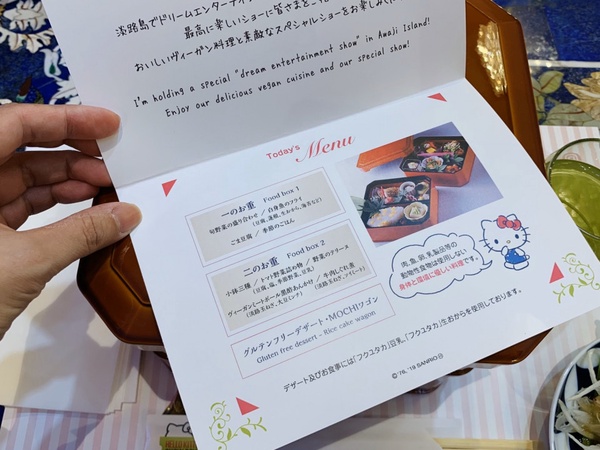 淡路島でドリームエンターテイ
最高に楽しいショーに皆さまをご
おいしいヴィーガン料理と素敵なスペシャルショーをお楽しみ
I'm holding a special "dream entertainment show" in Awaji Island!
Enjoy our delicious vegan cuisine and our special show!
Today's Menu
一のお重 Food box 1
旬野菜の盛り合わせ / 白身魚のフライ
(豆腐、蓮根、生おから、海苔など)
ごま豆腐 / 季節のごはん
二のお重 Food box 2
小鉢三種 / トマト野菜詰め物 / 野菜のテリーヌ
(豆腐、塩、季節野菜、豆乳)
ヴィーガンミートボール黒酢あんかけ / 牛肉しぐれ煮
(淡路玉ねぎ、大豆ミンチ) (淡路玉ねぎ、ソイミート)
グルテンフリーデザート・MOCHIワゴン
Gluten free dessert - Rice cake wagon
肉、魚、卵、乳製品等の
動物性食物は使用しない
身体と環境に優しい料理です。
デザート及びお食事には「フクユタカ」豆乳、「フクユタカ」生おからを使用しております。
©'76, '19 SANRIO